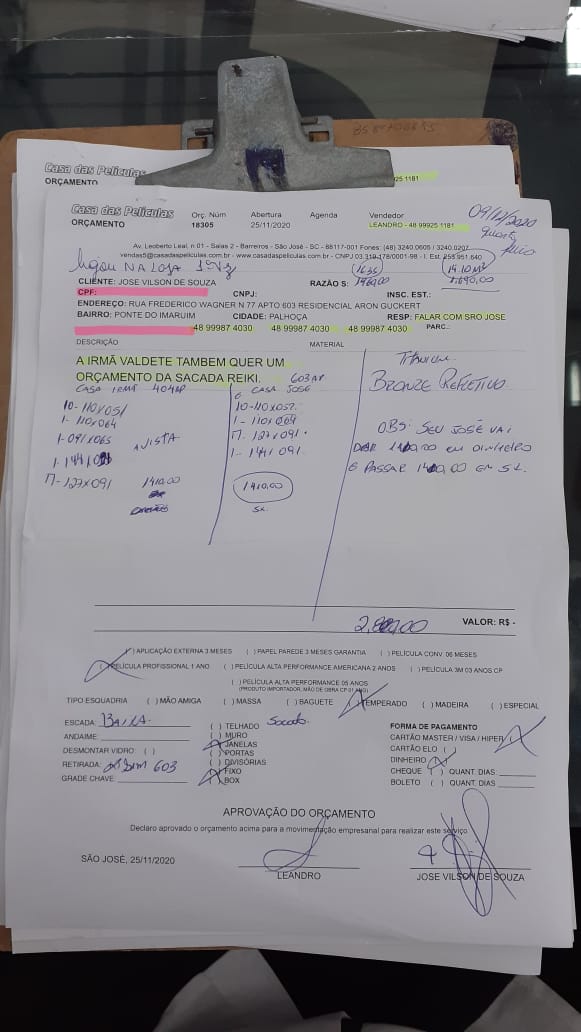 Casa das Películas
ORÇAMENTO
Casa das Películas
ORÇAMENTO
Orç. Núm
18305
Abertura
25/11/2020
Agenda
Vendedor
LEANDRO - 48 99925 1181
09/12/2020
quarta
Av. Leoberto Leal, n 01 - Salas 2 - Barreiros - São José - SC - 88117-001 Fones: (48) 3240.0605 / 3240.0207
vendas5@casadaspeliculas.com.br - www.casadaspeliculas.com.br - CNPJ 03.319.478/0001-98 - I. Est. 255.951.640
ligou NA LOJA
CLIENTE: JOSE VILSON DE SOUZA RAZÃO S:
CPF: CNPJ: INSC. EST.:
ENDEREÇO: RUA FREDERICO WAGNER N 77 APTO 603 RESIDENCIAL ARON GUCKERT
BAIRRO: PONTE DO IMARUIM CIDADE: PALHOÇA RESP: FALAR COM SRO JOSE
48 99987 4030 48 99987 4030 48 99987 4030 PARC.:
DESCRIÇÃO MATERIAL
A IRMÃ VALDETE TAMBEM QUER UM
ORÇAMENTO DA SACADA REIKI. 603 AP
CASA IRMÃ 404 AP
10-110x051
1-110x064
1-091x065 AVISTA
17-127x091 1410,00
CASA JOSÉ
10-110x057.
17-127x091.
1-141 091.
1410,00
5X.
TITANIUM
BRONZE REFLETIVO
OBS: SEU JOSÉ VAI
EM DINHEIRO
E PASSAR EM 5X.
VALOR: R$ -
( ) APLICAÇÃO EXTERNA 3 MESES ( ) PAPEL PAREDE 3 MESES GARANTIA ( ) PELÍCULA CONV. 06 MESES
(X) PELÍCULA PROFISSIONAL 1 ANO ( ) PELÍCULA ALTA PERFORMANCE AMERICANA 2 ANOS ( ) PELÍCULA 3M 03 ANOS CP
( ) PELÍCULA ALTA PERFORMANCE 05 ANOS
(PRODUTO IMPORTADOR, MÃO DE OBRA CP 01 ANO)
TIPO ESQUADRIA ( ) MÃO AMIGA ( ) MASSA ( ) BAGUETE (X) TEMPERADO ( ) MADEIRA ( ) ESPECIAL
ESCADA: BAIXA
ANDAIME:
DESMONTAR VIDRO: ( )
RETIRADA: SIM 603
GRADE CHAVE:
( ) TELHADO Sacada
( ) MURO
(X) JANELAS
( ) PORTAS
( ) DIVISÓRIAS
(X) FIXO
( ) BOX
FORMA DE PAGAMENTO
CARTÃO MASTER / VISA / HIPER (X)
CARTÃO ELO ( )
DINHEIRO (X)
CHEQUE ( ) QUANT. DIAS:
BOLETO ( ) QUANT. DIAS:
APROVAÇÃO DO ORÇAMENTO
Declaro aprovado o orçamento acima para a movimentação empresarial para realizar este serviço
SÃO JOSÉ, 25/11/2020
LEANDRO
JOSE VILSON DE SOUZA